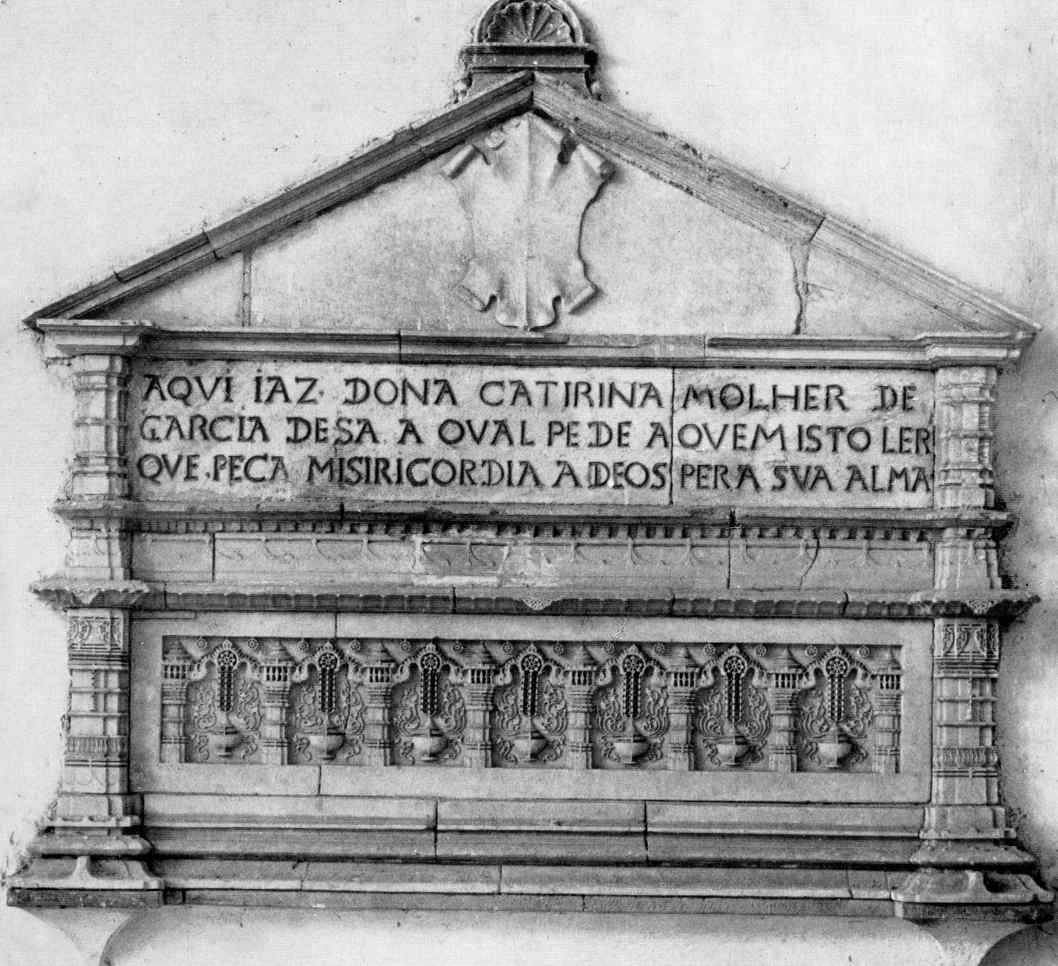 AQVI IAZ· DONA CATIRINA MOLHER DE
GARCIA DESA. A QVAL PEDE A QVEM ISTO LER
QVE .PECA MISIRICORDIA ADEOS PERA SVA ALMA